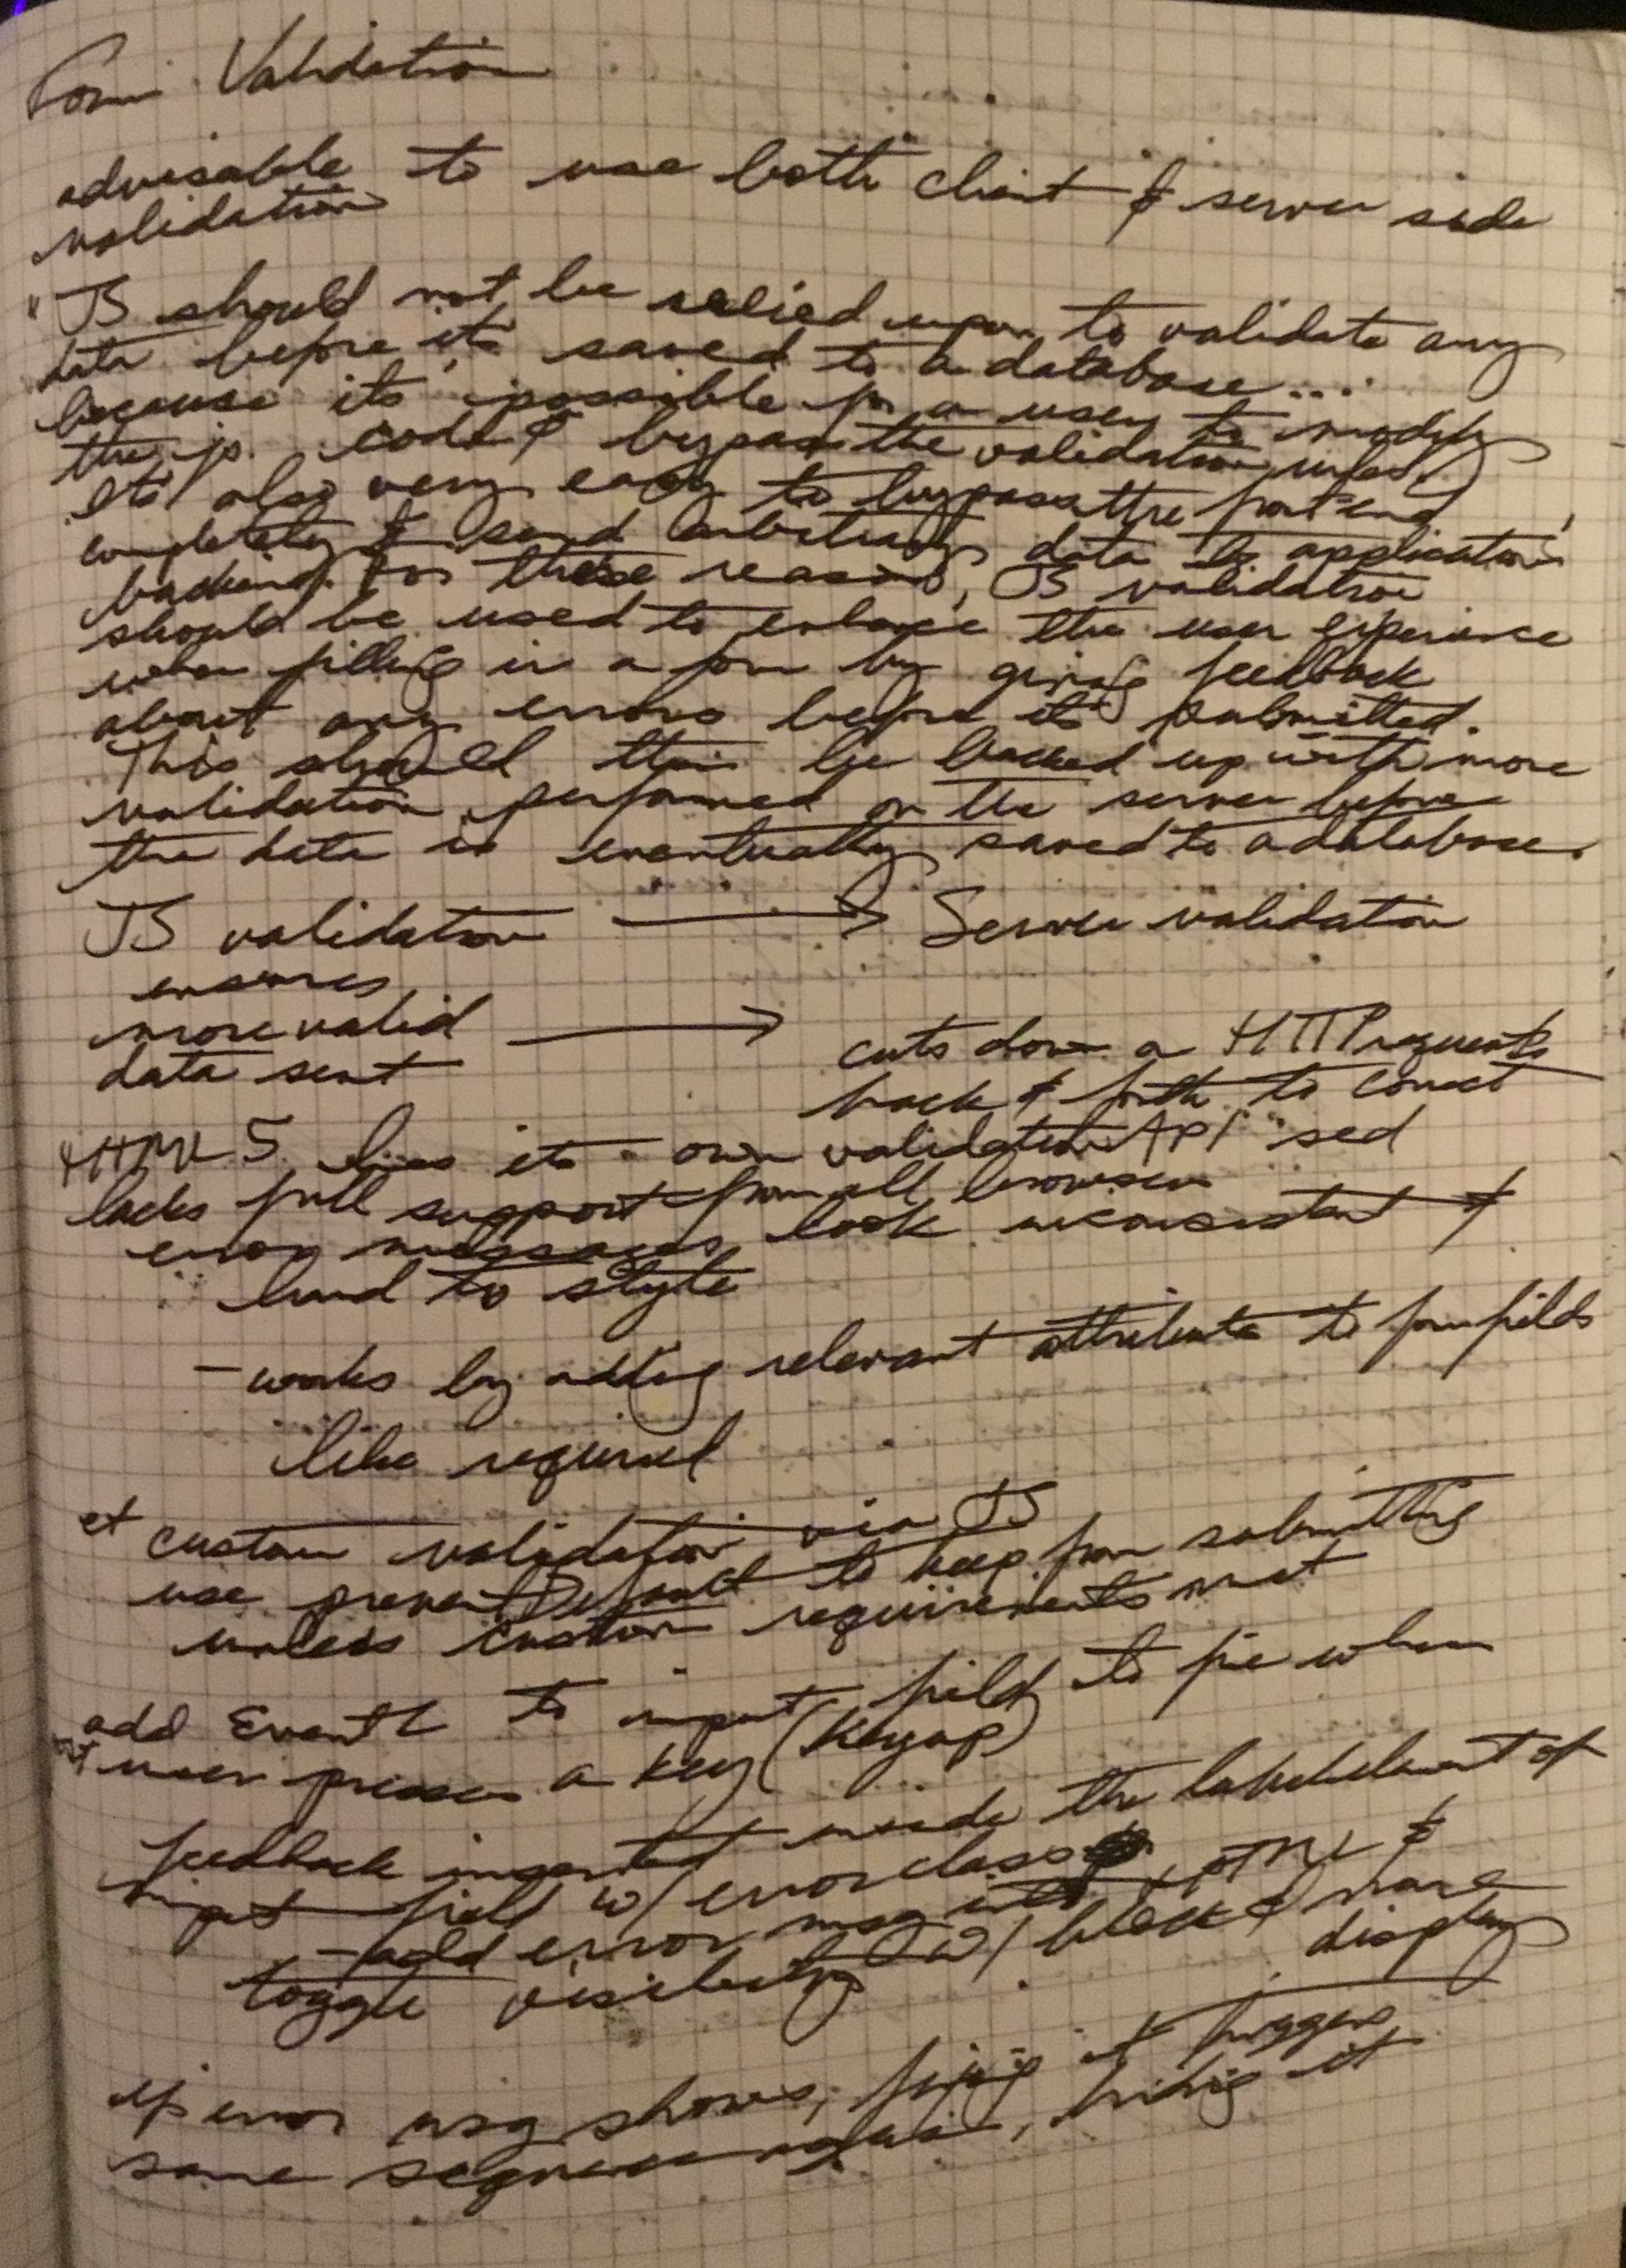 Form Validation
advisable to use both client & server side
validation
"JS should not be relied upon to validate any
data before it's saved to a database...
because it's possible for a user to modify
the js. code & bypass the validation rules.
It's also very easy to bypass the front-end
completely & send arbitrary data to application
backend. For these reasons, JS validation
should be used to enhance the user experience
when filling in a form by giving feedback
about any errors before it's submitted.
This should then be backed up with more
validation performed on the server before
the data is eventually saved to a database.
JS validation → Server validation
ensures
more valid
data sent →
cuts down on HTTP requests
back & forth to correct
HTML 5 has its own validation API sed
lacks full support from all browsers
error messages look inconsistent &
hard to style
- works by adding relevant attribute to form fields
like required
et custom validation via JS
use preventDefault to keep from submitting
unless custom requirements met
add EventL to input field to fire when
user presses a key (keyup)
feedback inserted inside the label element of
input field w/ error class
- add error msg into HTML &
toggle visibility w/ block & none
display
if error msg shows, fixing it triggers
same sequence again, hiding it